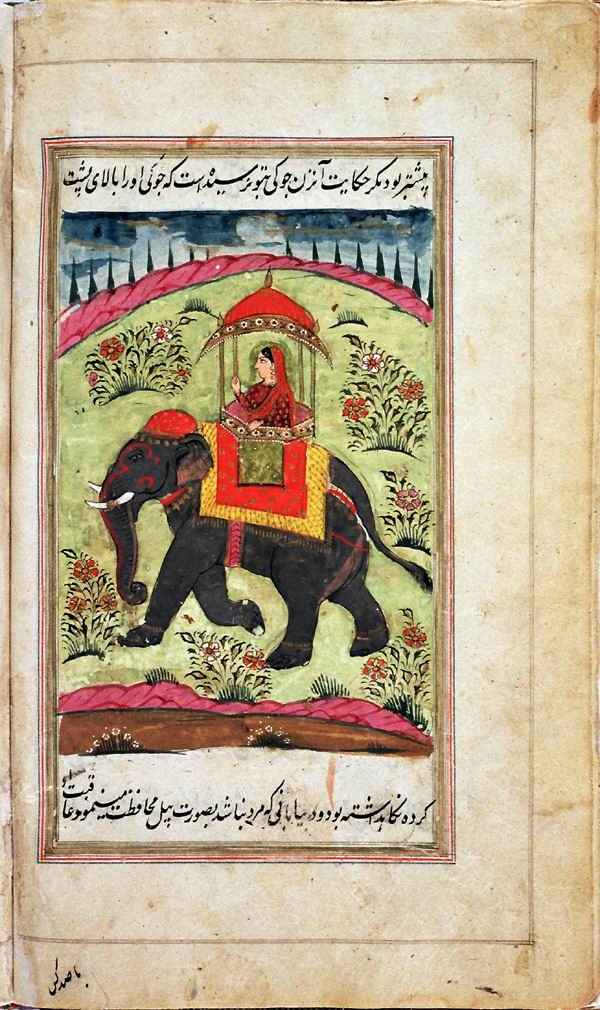 پیشتر بود دیگر حکایت آنزن جوکی بتو نرسیده است که جوکی او را بالای پشت
کرده نگاهداشته بود و در بیابانی که مرد نباشد بصورت پیل محافظت مینمود عاقبت او
با صد کس